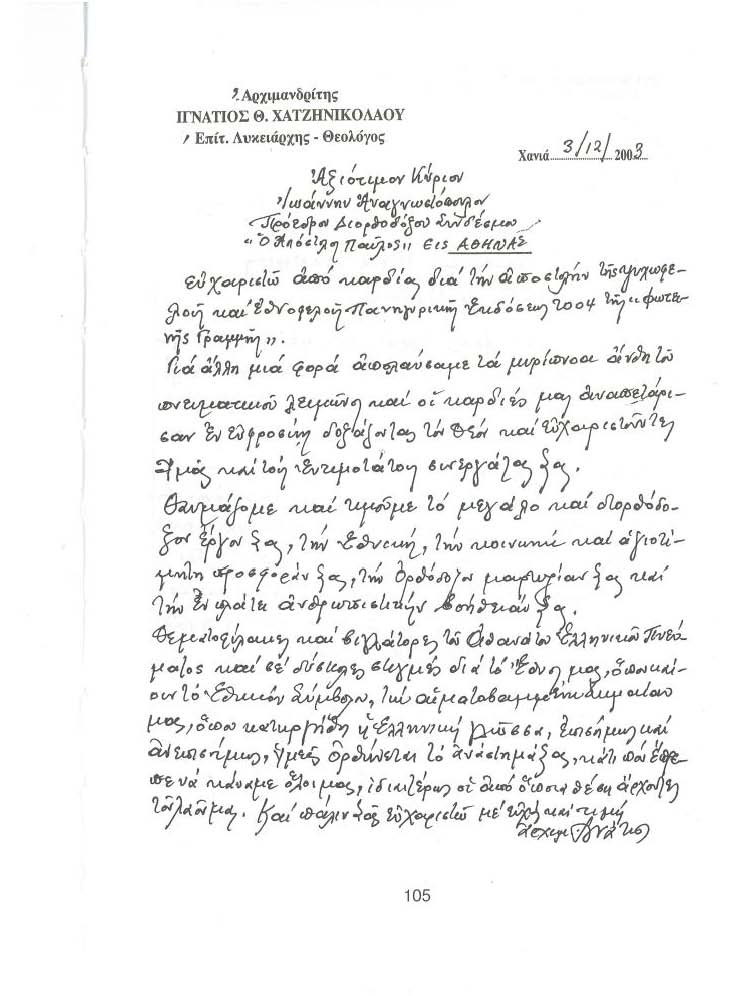 Ἀρχιμανδρίτης
ΙΓΝΑΤΙΟΣ Θ. ΧΑΤΖΗΝΙΚΟΛΑΟΥ
Ἐπίτ. Λυκειάρχης - Θεολόγος
Χανιά 3/12/2003
Ἀξιότιμον Κύριον
Ἰωάννην Ἀναγνωστόπουλον
Πρόεδρον Διορθοδόξου Συνδέσμου
"Ὁ Ἀπόστολος Παῦλος" Εἰς ΑΘΗΝΑΣ
Εὐχαριστῶ ἀπό καρδίας διά τήν ἀποστολήν τῆς ψυχωφε-
λοῦς καί Ἐθνοφελοῦς Πανηγυρικῆς Ἐκδόσεως 2004 τῆς "Φωτει-
νῆς Γραμμῆς".
Γιά ἄλλη μιά φορά ἀπολαύσαμε τά μυρίπνοα ἄνθη τοῦ
πνευματικοῦ λειμῶνος καί οἱ καρδιές μας ἀναπετάρι-
σαν ἐν εὐφροσύνῃ δοξάζοντας τόν Θεόν καί εὐχαριστοῦντες
Ὑμᾶς καί τούς ἐντιμοτάτους συνεργάτας Σας.
Θαυμάζομε καί τιμοῦμε τό μεγάλο καί διορθόδο-
ξον ἔργον Σας, τήν Ἐθνική, τήν κοινωνική καί ἀξιοτί-
μητη προσφοράν Σας, τήν Ὀρθόδοξον μαρτυρίαν Σας καί
τήν ἐν πλάτει ἀνθρωπιστικήν βοήθειάν Σας.
Θεματοφύλακες καί βιγλάτορες τοῦ ἀθανάτου Ἑλληνικοῦ Πνεύ-
ματος καί σέ δύσκολες στιγμές διά τό Ἔθνος μας, ὅπου καί-
ουν τό Ἐθνικόν Σύμβολον, τήν αἱματοβαμμένη σημαίαν
μας, ὅπου κατηργήθη ἡ Ἑλληνική γλῶσσα, ἐπισήμως καί
ἀνεπισήμως, Ὑμεῖς ὀρθώνεται τό ἀνάστημά Σας, κάτι πού ἔπρε-
πε νά κάναμε ὅλοι μας, ἰδιαιτέρως οἱ ἀπό ὅποια θέση ἄρχοντες
τοῦ λαοῦ μας. Καί πάλιν Σᾶς εὐχαριστῶ μέ εὐχές καί τιμή
ἀρχιμ. Ἰγνάτιος
105